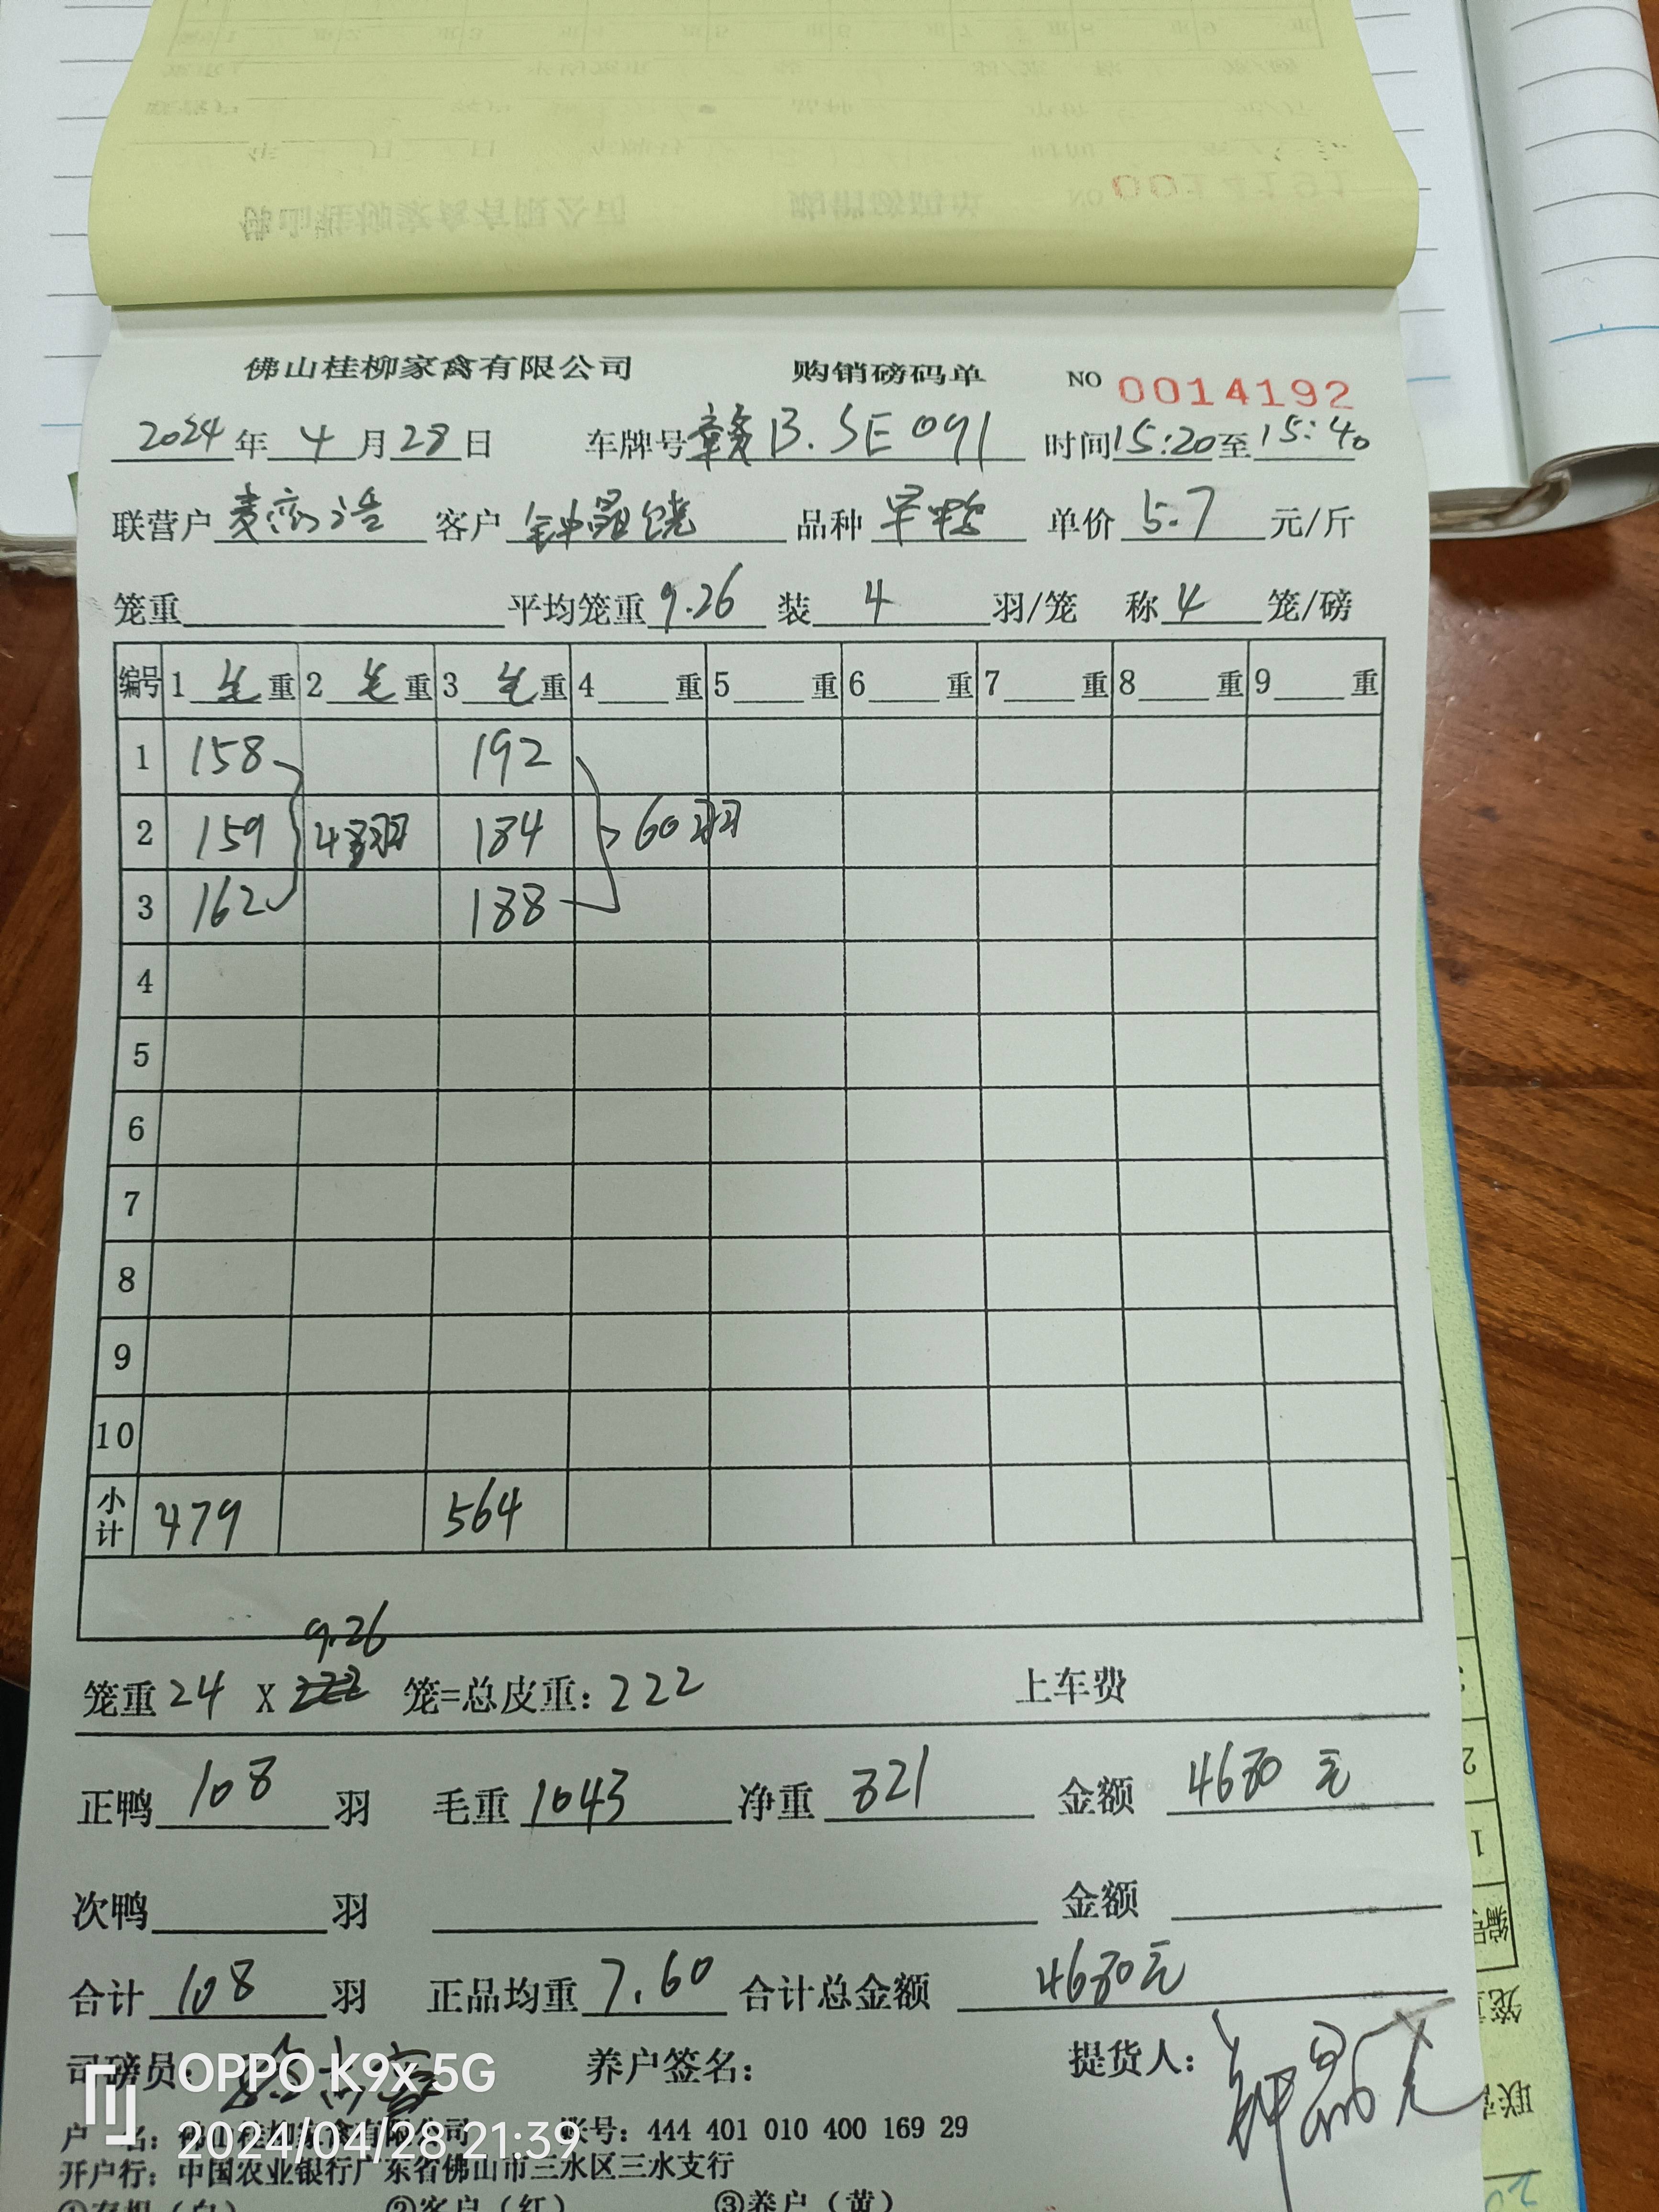 佛山桂柳家禽有限公司 购销磅码单 NO 0014192
2024年4月28日 车牌号赣B.SE091 时间15:20至15:40
联营户 客户 钟 品种 单价 5.7 元/斤
笼重 平均笼重 9.26 装 4 羽/笼 称 4 笼/磅
编号 1 毛 重 2 毛 重 3 毛 重 4 重 5 重 6 重 7 重 8 重 9 重
1 158 192
2 159 48羽 184 60羽
3 162 188
4
5
6
7
8
9
10
小计 479 564
9.26
笼重 24 X 笼=总皮重: 222 上车费
正鸭 108 羽 毛重 1043 净重 821 金额 4680 元
次鸭 羽 金额
合计 108 羽 正品均重 7.60 合计总金额 4680元
司磅员: 养户签名: 提货人:
OPPO K9x 5G
户 名: 佛山桂柳家禽有限公司 账号: 444 401 010 400 169 29
2024/04/28 21:39
开户行: 中国农业银行广东省佛山市三水区三水支行
①存根（白） ②客户（红） ③养户（黄）